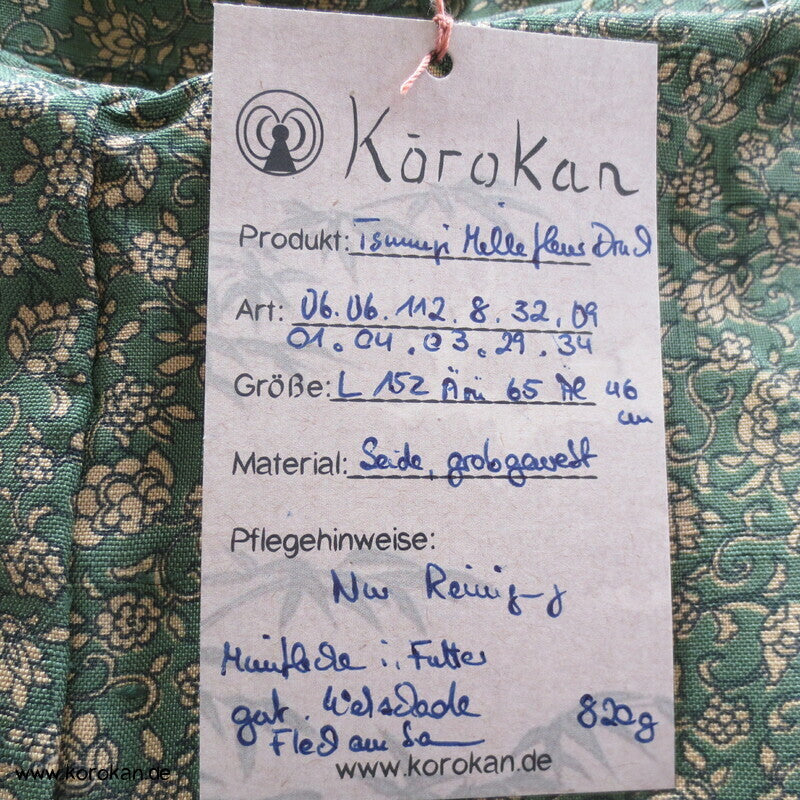 Kōrokan
Produkt: Tsumugi Druck
Art: 06.06.112.8.32.09
01.04.03.29.34
Größe: L 152 Äm 65 Äl 46
cm
Material: Seide, grob gewebt
Pflegehinweise:
Nur Reinig
Miniflecke i. Futter
gut.
Fleck am Sa
820g
www.korokan.de
www.korokan.de